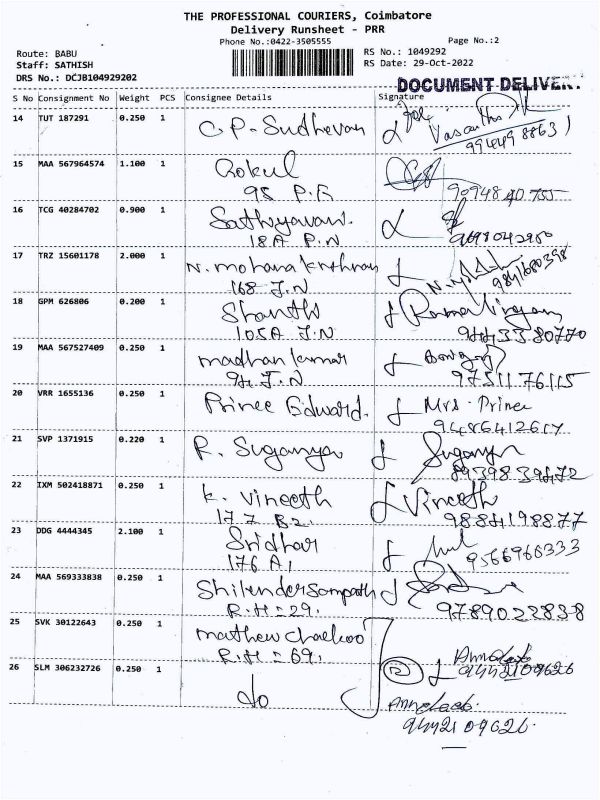 THE PROFESSIONAL COURIERS, Coimbatore
Delivery Runsheet - PRR
Phone No.:0422-3505555 Page No.:2
Route: BABU RS No.: 1049292
Staff: SATHISH RS Date: 29-Oct-2022
DRS No.: DCJB104929202
DOCUMENT DELIVERY
S No Consignment No Weight PCS Consignee Details Signature
14 TUT 187291 0.250 1 C.P. Sudhevan
15 MAA 567964574 1.100 1 Gokul
98 P.R
16 TCG 40284702 0.900 1
18A P.N
17 TRZ 15601178 2.000 1
168 J.N 9841680398
18 GPM 626806 0.200 1 Shanthi
105A J.N 9443380770
19 MAA 567527409 0.250 1 madhan kumar
94 J.N 9751176115
20 VRR 1655136 0.250 1 Prince Edward. Mrs. Prince
9486412617
21 SVP 1371915 0.220 1 R. Suganya Suganya
22 IXM 502418871 0.250 1 K. Vineeth Vineeth
177 B2. 9884198877
23 DDG 4444345 2.100 1 Sridhar
176 A1 9566966333
24 MAA 569333838 0.250 1 Shilender Sampath
R.H = 29. 9789022838
25 SVK 30122643 0.250 1 mathew chackoo
R.H = 69. 9442109626
26 SLM 306232726 0.250 1 do
9442109626.